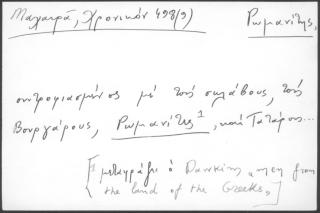 Μαχαιρά, Χρονικόν 498(9)
Ρωμανίτης,
συντροφιασμένος μὲ τοὺς σκλάβους, τοὺς
Βουργάρους, Ρωμανίτες 1, καὶ Τατάρους...
[1 μεταφράζει ὁ Dawkins « men from
the land of the Greeks »]